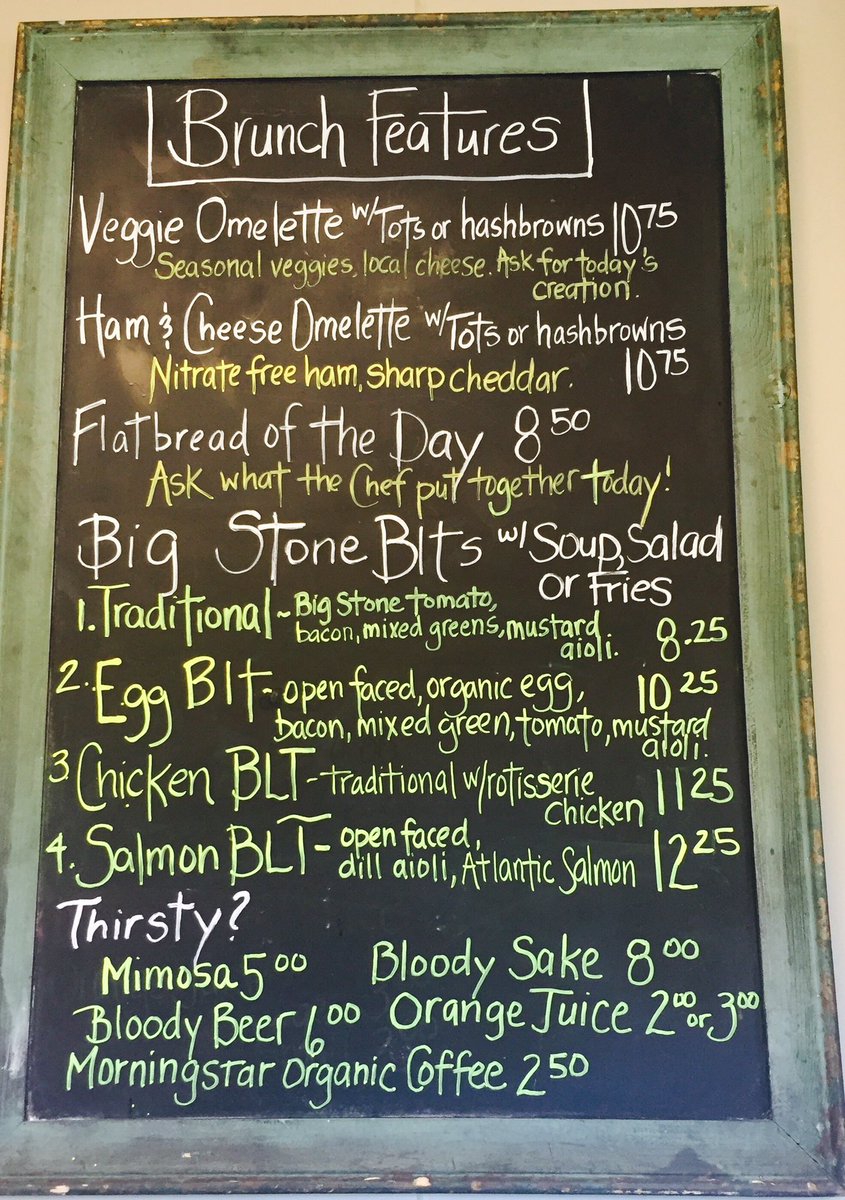 Brunch Features
Veggie Omelette w/Tots or hashbrowns 10 75
Seasonal veggies, local cheese. Ask for today's
creation.
Ham & Cheese Omelette w/Tots or hashbrowns
Nitrate free ham, sharp cheddar. 10 75
Flatbread of the Day 8 50
Ask what the Chef put together today!
Big Stone Blts w/ Soup, Salad
or Fries
1. Traditional ~ Big Stone tomato,
bacon, mixed greens, mustard
aioli. 8.25
2. Egg Blt - open faced, organic egg, 10 25
bacon, mixed green, tomato, mustard
aioli.
3 Chicken BLT - traditional w/rotisserie
chicken 11 25
4. Salmon BLT - open faced,
dill aioli, Atlantic Salmon 12 25
Thirsty?
Mimosa 5 00 Bloody Sake 8 00
Bloody Beer 6 00 Orange Juice 2 00 or 3 00
Morningstar Organic Coffee 2 50